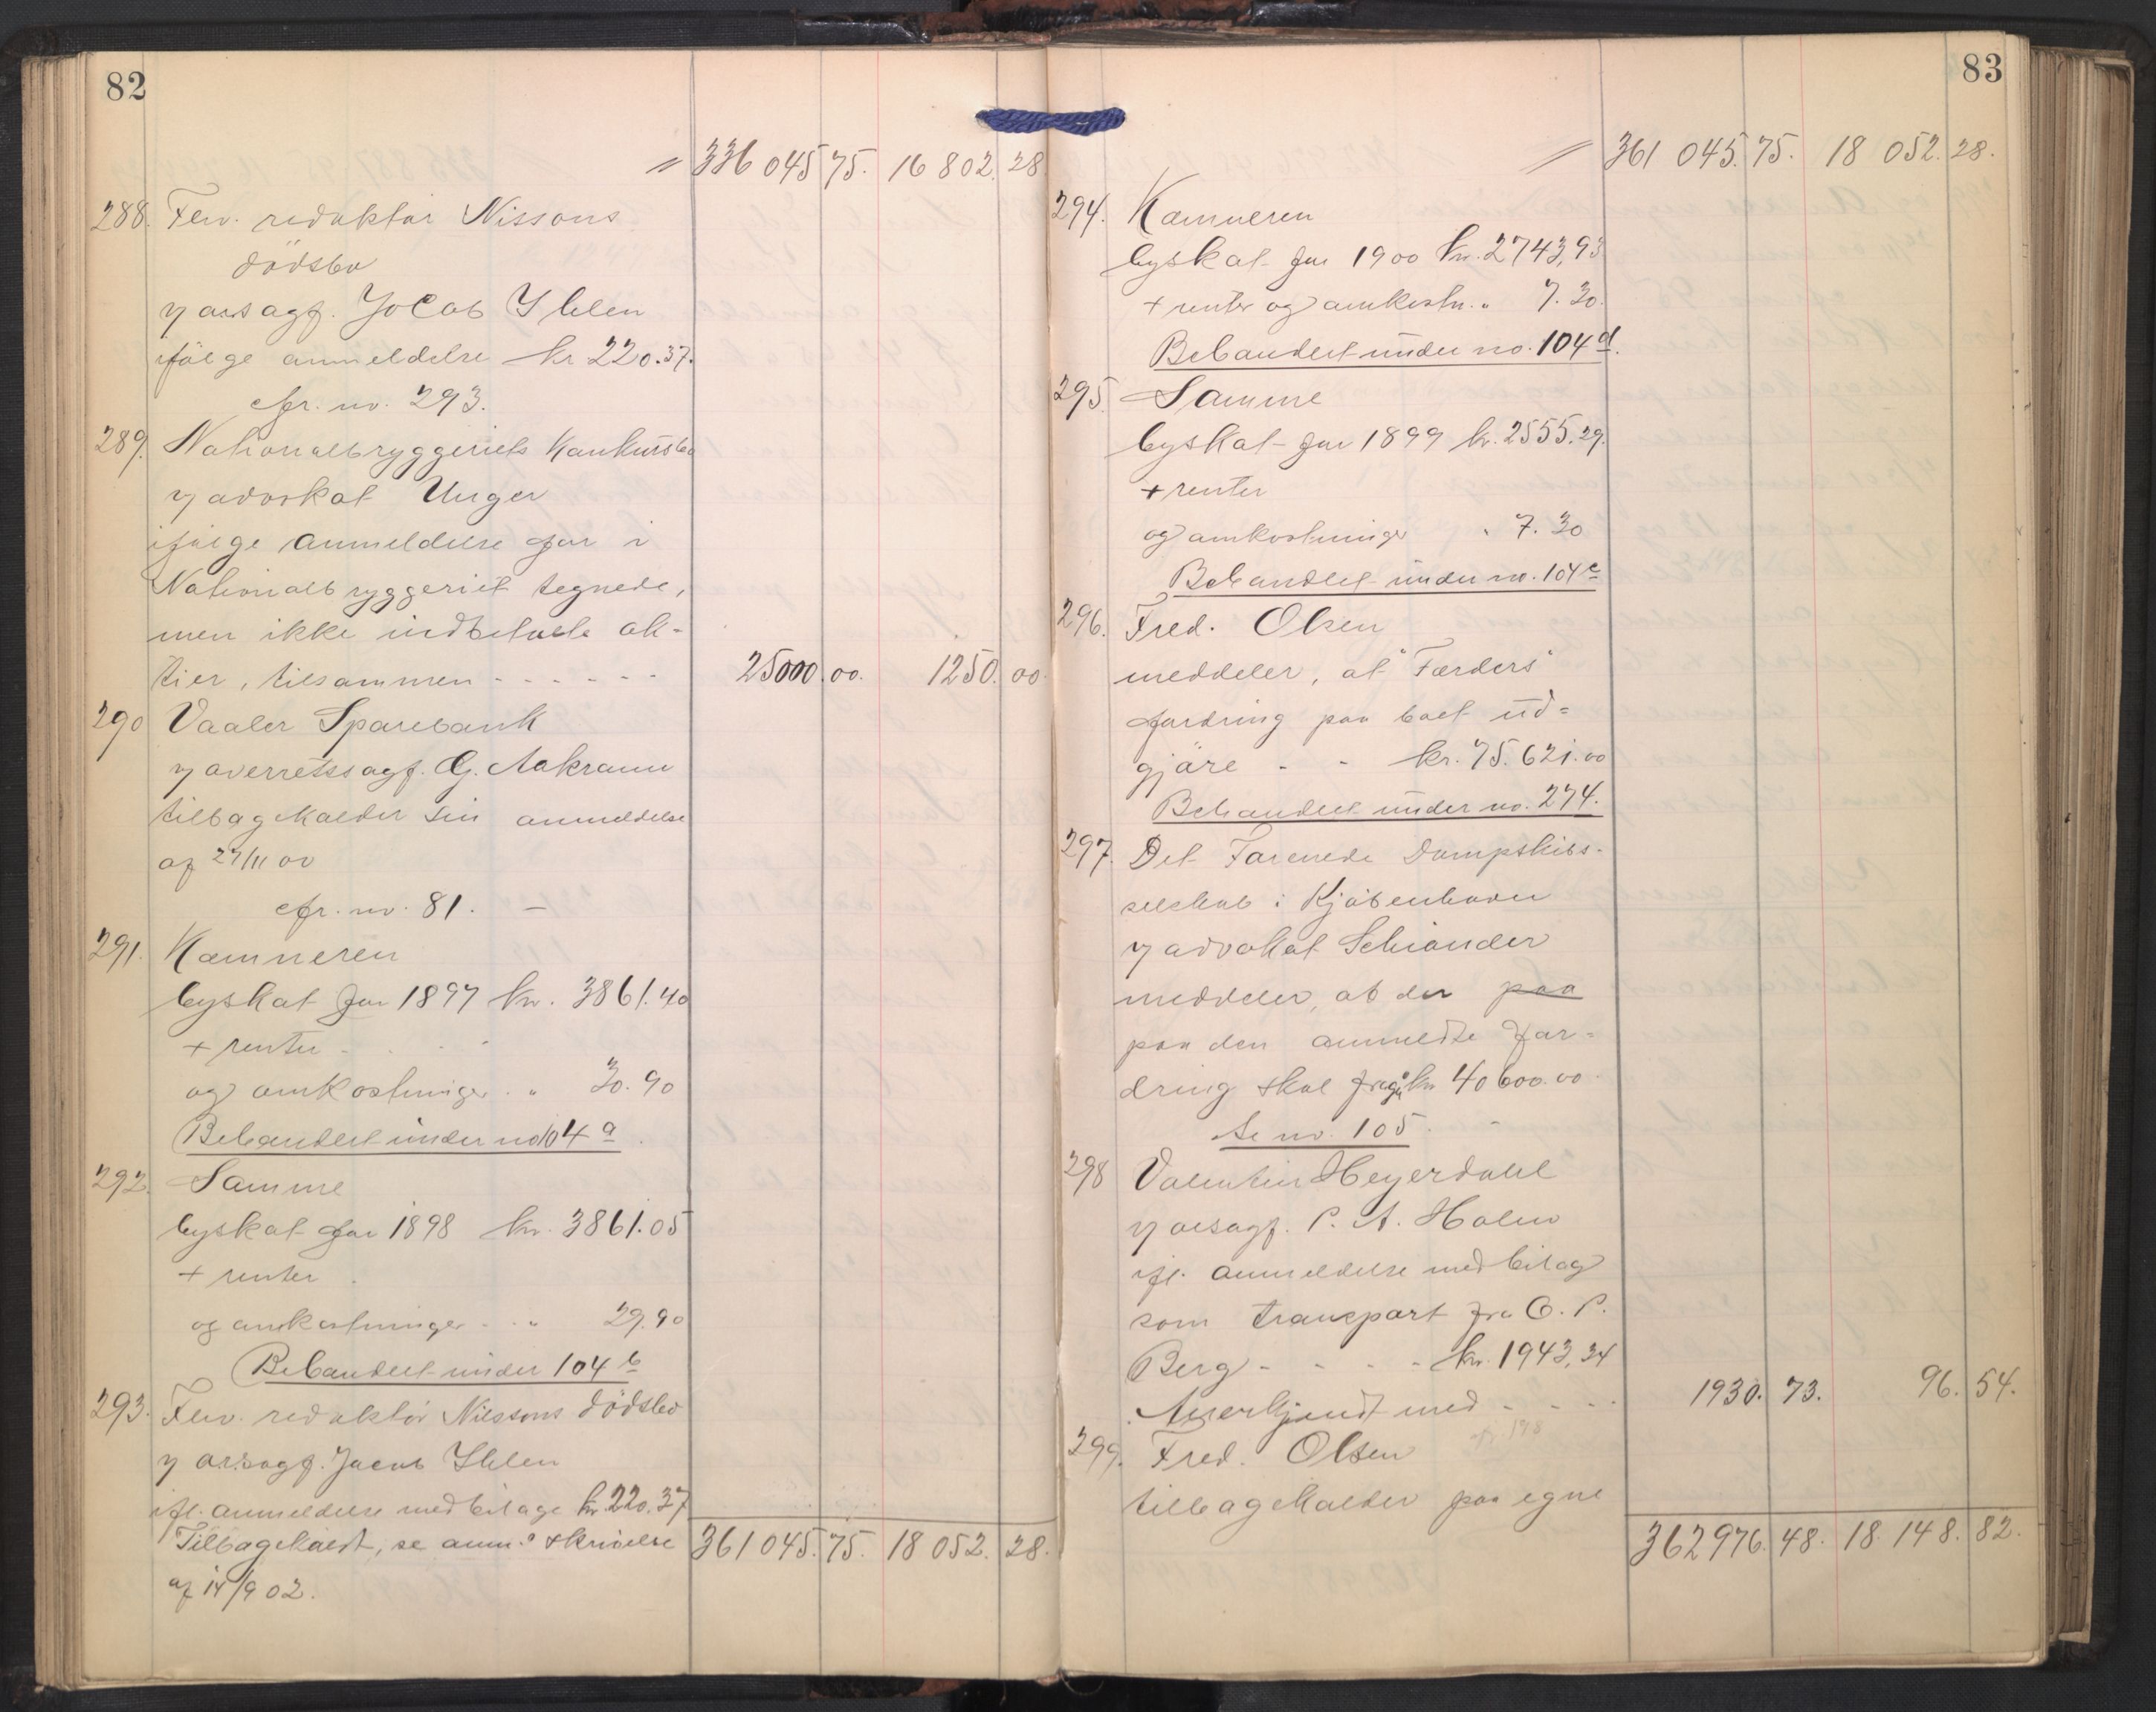 82
〃 336 045 75. 16 802. 28
288. Flv. redaktør Nissons
dödsbo
v/ orsagf. Jocob Ihlen
ifölge anmeldelse kr 220.37.
cfr. no. 293.
289. Nationalbryggeriets Konkursbo
v/ advokat Unger
ifölge anmeldelse for i
Nationalbryggeriet tegnede,
men ikke indbetalte ak-
tier, tilsammen - - - - - - 25000.00. 1250.00
290 Vaaler Sparebank
v/ overretssagf. G. Aakrann
tilbagekalder sin anmeldelse
af 27/11 00
cfr. no. 81. —
291. Kæmneren
byskat for 1897 kr. 3861.40
+ renter - - - -
og omkostninger . " 30.90
Behandlet under no 104 a.
292. Samme
byskat for 1898 kr. 3861.05
+ renter .
og omkostninger - . " 29.90
Behandlet under 104 b
293. Flv. redaktör Nilssons dödsbo
v/ orsagf. Jacob Ihlen
ifl. anmeldelse med bilage kr. 220.37
Tilbagekaldt, se anm.s skrivelse 361 045. 75. 18 052. 28.
af 14/9 02.
83
〃 361 045. 75. 18 052. 28.
294. Kæmneren
byskat for 1900 kr. 2743,93
+ renter og omkostn. " 7.30.
Behandlet under no. 104 d.
295. Samme
byskat for 1899 kr. 2555.29.
+ renter
og omkostninger " 7.30
Behandlet under no. 104 c
296. Fred. Olsen
meddeler, at "Færders"
fordring paa boet ud=
gjöre - - kr. 75.621.00
Behandlet under no. 274.
297. Det Forenede Dampskibs-
selskab i Kjöbenhavn
v/ advokat Schiander
meddeler, at der paa
paa den anmeldte for=
dring skal fragå kr 40600.00.
Se no. 105.
298 Valentin Heyerdahl
v/ orsagf. P. A. Holm
ifl. anmeldelse med bilag
som transport fra O. P.
Berg - - - - kr. 1943,34
Anerkjendt med - - - - 1930. 73. 96. 54.
299. Fred. Olsen
tilbagekalder paa egne
362976. 48. 18. 148. 82.